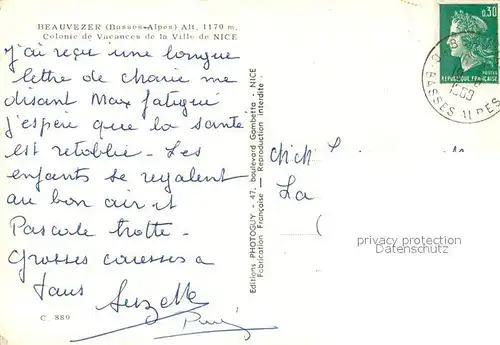 BEAUVEZER (Basses-Alpes) Alt. 1170 m.
Colonie de Vacances de la Ville de NICE
J'ai reçu une longue
lettre de me
disant Max fatigué
j'espère que la santé
est retablie - Les
enfants se regalent
au bon air et
Pascale trotte -
Grosses caresses a
tous
Suzette
C. 889
Editions PHOTOGUY - 47, boulevard Gambetta - NICE
Fabrication Française — Reproduction interdite
0,30
POSTES
REPUBLIQUE FRANÇAISE
BASSES ALPES
La
(
privacy protection
Datenschutz